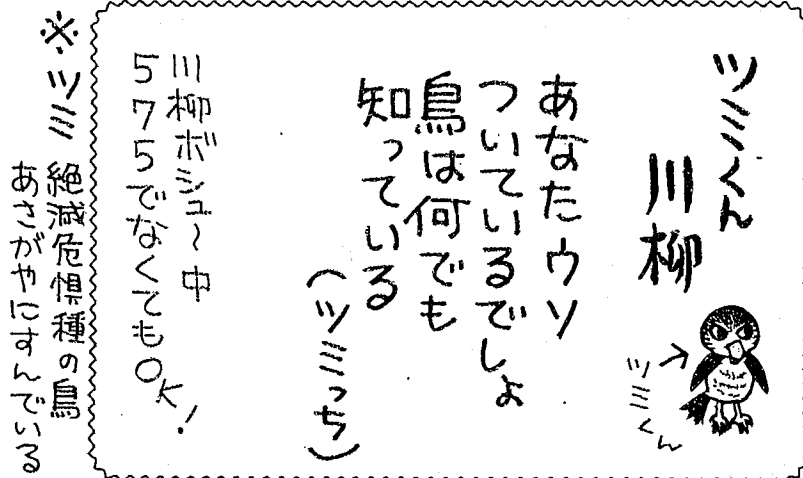 ツミくん
川柳
ツミくん
あなたウソ
ついているでしょ
鳥は何でも
知っている
(ツミっち)
川柳ボシュ~中
575でなくてもOK!
※ツミ 絶滅危惧種の鳥
あさがやにすんでいる